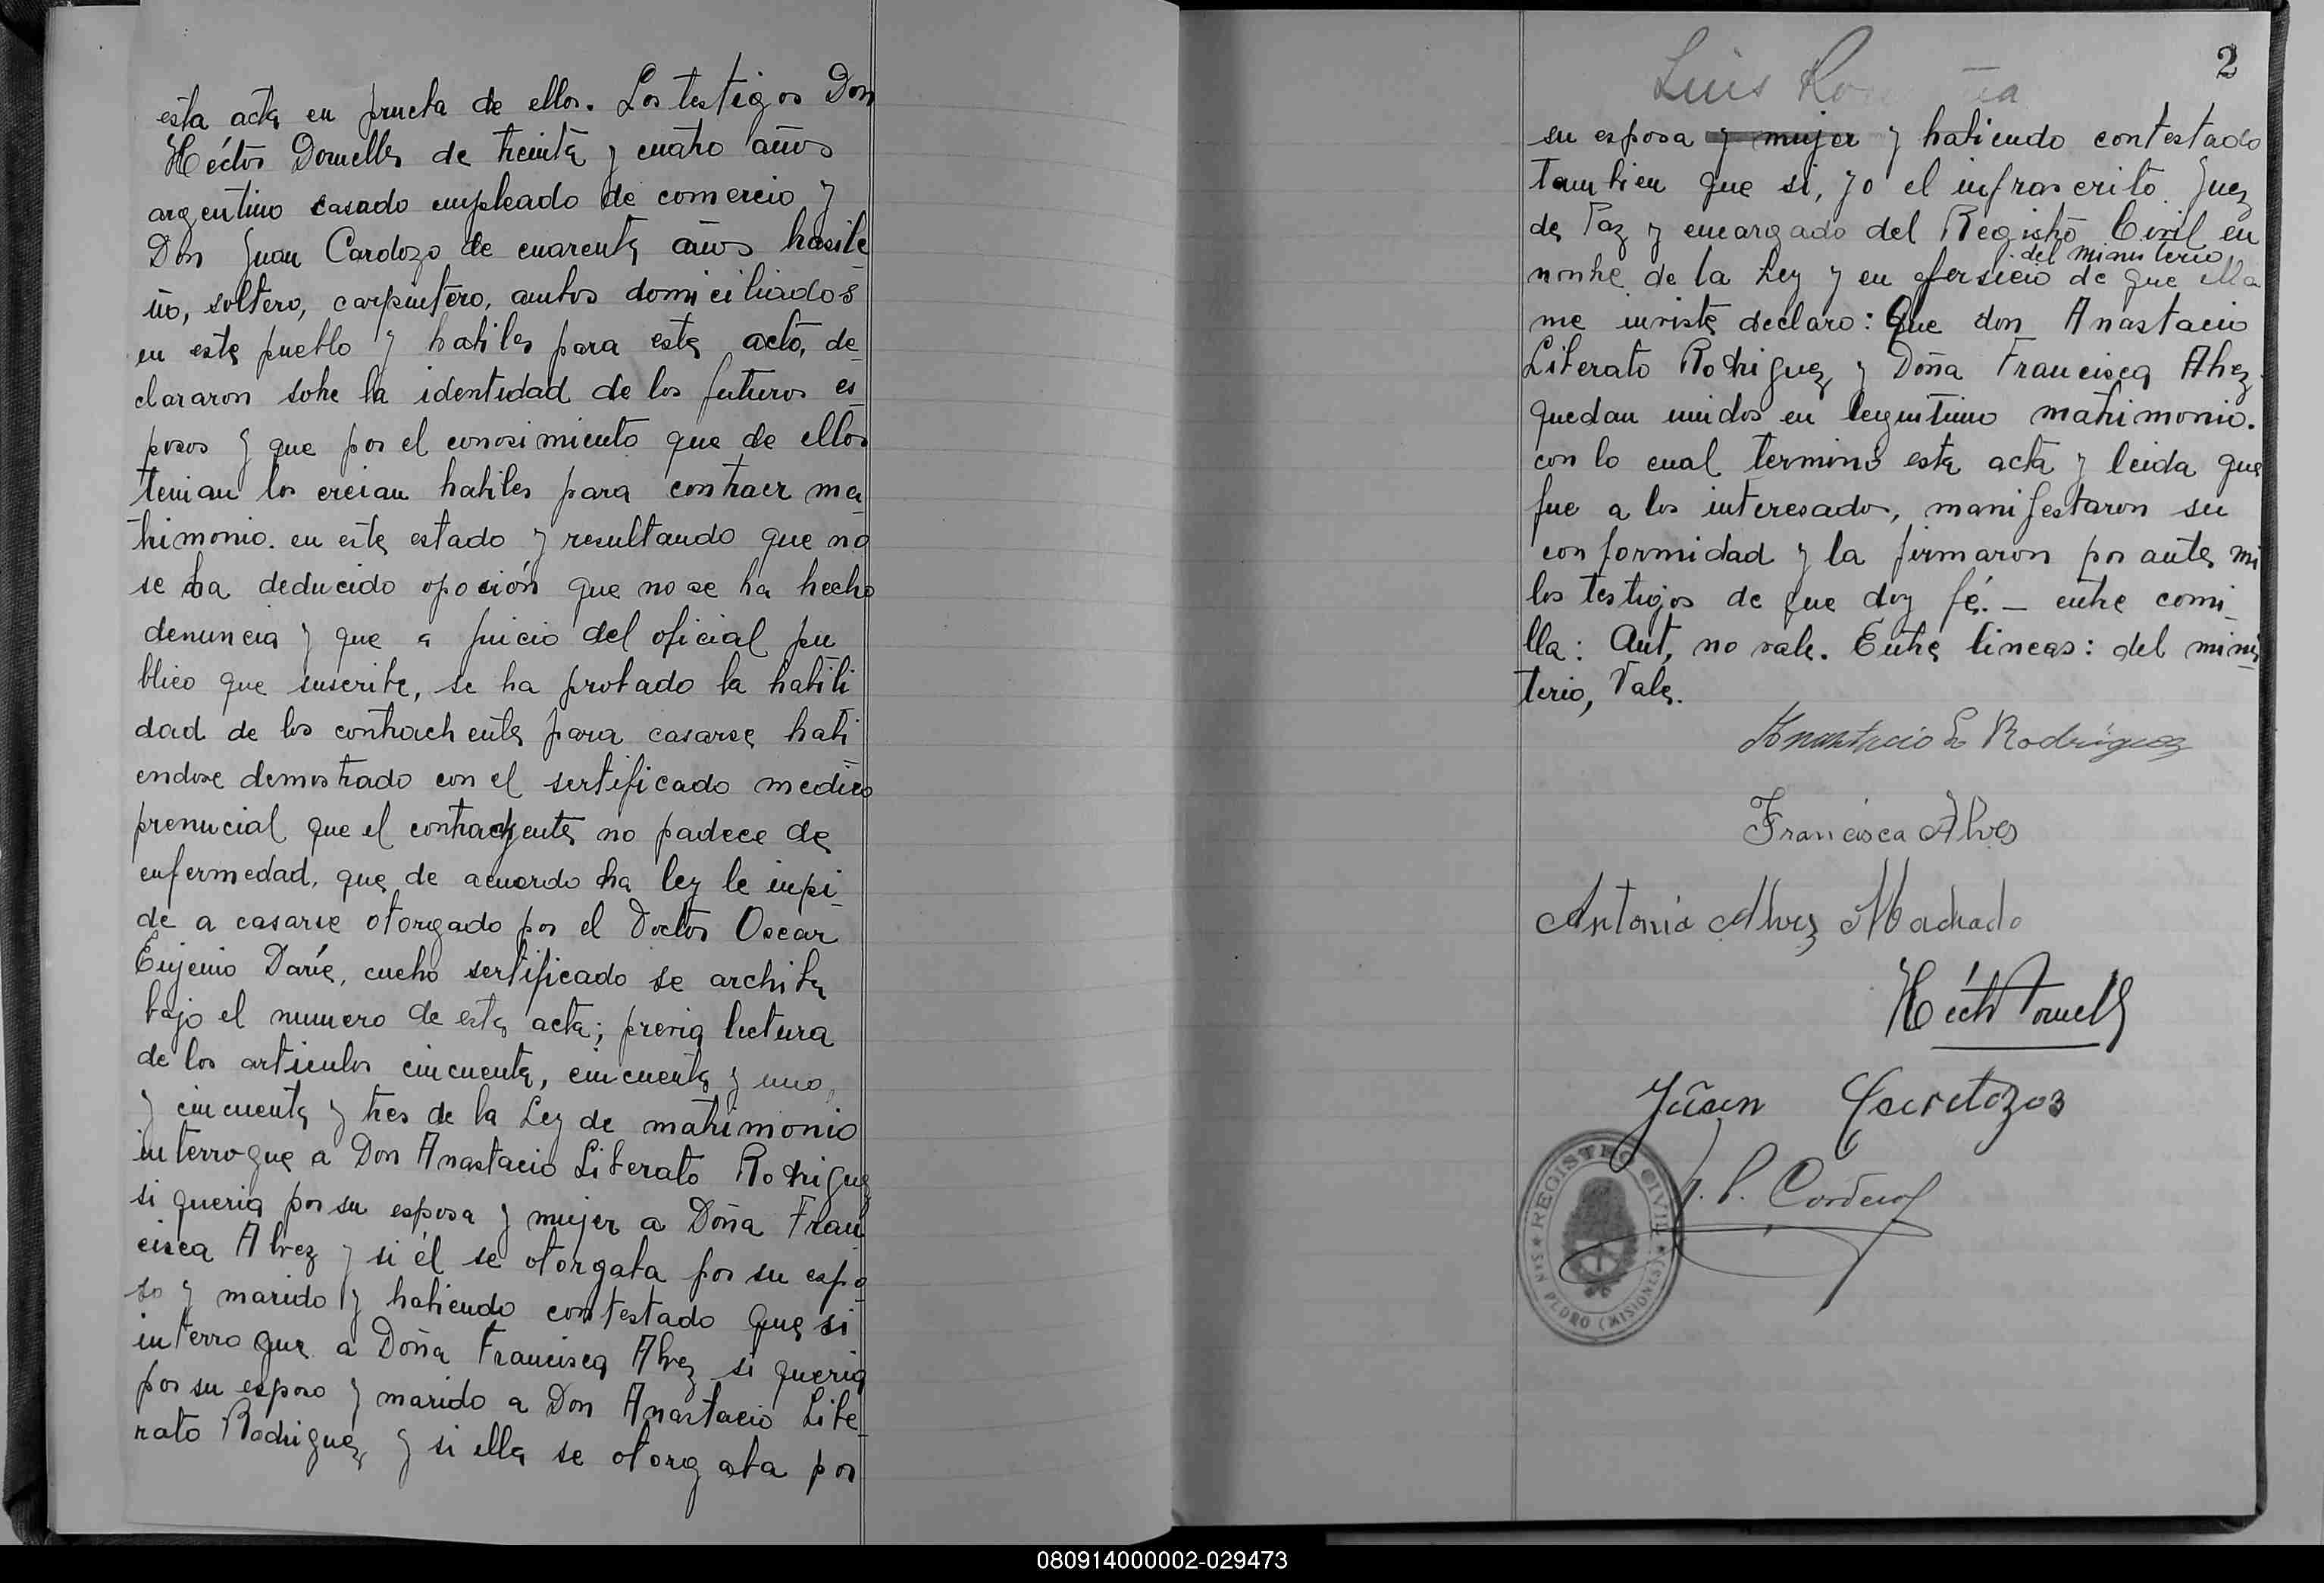 esta acta en prueba de ellos. Los testigos Don
Héctor Dornelles de treinta y cuatro años
argentino casado empleado de comercio y
Don Juan Cardozo de cuarenta años brasile
ño, soltero, carpintero, ambos domiciliados
en este pueblo y habiles para este acto, de_
clararon sobre la identidad de los futuros es_
posos y que por el conosimiento que de ellos
tenian los creian habiles para contraer ma_
trimonio. en este estado y resultando que no
se ha deducido oposión que no se ha hecho
denuncia y que a juicio del oficial pu
blico que suscribe, se ha probado la habili
dad de los contrachentes para casarse habi
endose demostrado con el sertificado medico
prenucial que el contrachente no padece de
enfermedad, que de acuerdo ha ley le inpi_
de a casarse otorgado por el Doctor Oscar
Eujenio Daríe, cucho sertificado se archiba
bajo el numero de esta acta; previa lectura
de los articulos cincuenta, cincuenta y uno,
y cincuenta y tres de la Ley de matrimonio
interrogue a Don Anastacio Liberato Rodriguez
si queria por su esposa y mujer a Doña Fran_
cisca Alvez y si él se otorgaba por su espo_
so y marido y habiendo contestado que si
interrogue a Doña Francisca Alvez si queria
por su esposo y marido a Don Anastacio Libe_
rato Rodriguez y si ella se otorgaba por
2
Luis
su esposa y mujer y habiendo contestado
tambien que si, yo el infrascrito Juez
de Paz y encargado del Registro Civil en
del ministerio
nombre de la Ley y en ejersicio de que ella
me inviste declaro: Que don Anastacio
Liberato Rodriguez y Doña Francisca Alvez
quedan unidos en leguitimo matrimonio.
con lo cual terminó esta acta y leida que
fue a los interesados, manifestaron su
conformidad y la firmaron por ante mi
los testigos de que doy fé. — entre comi_
lla: Aut, no vale. Entre lineas: del minis
terio, Vale.
Anastacio L Rodriguez
Francisca Alves
Antonia Alvez Machado
Héctor Dornells
Juan Cardozos
J. P. Cordero
REGISTRO CIVIL
SAN PEDRO (MISIONES)
080914000002-029473